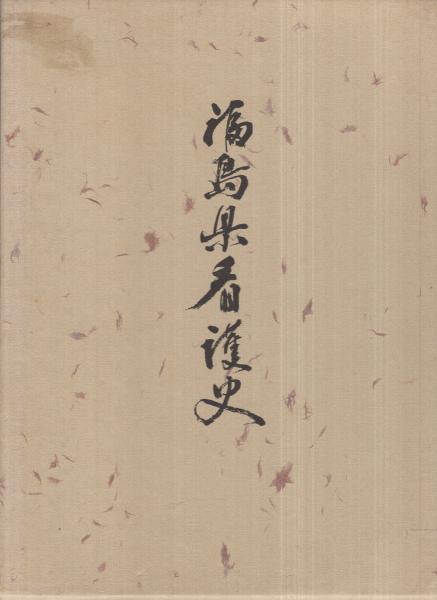 福島県看護史